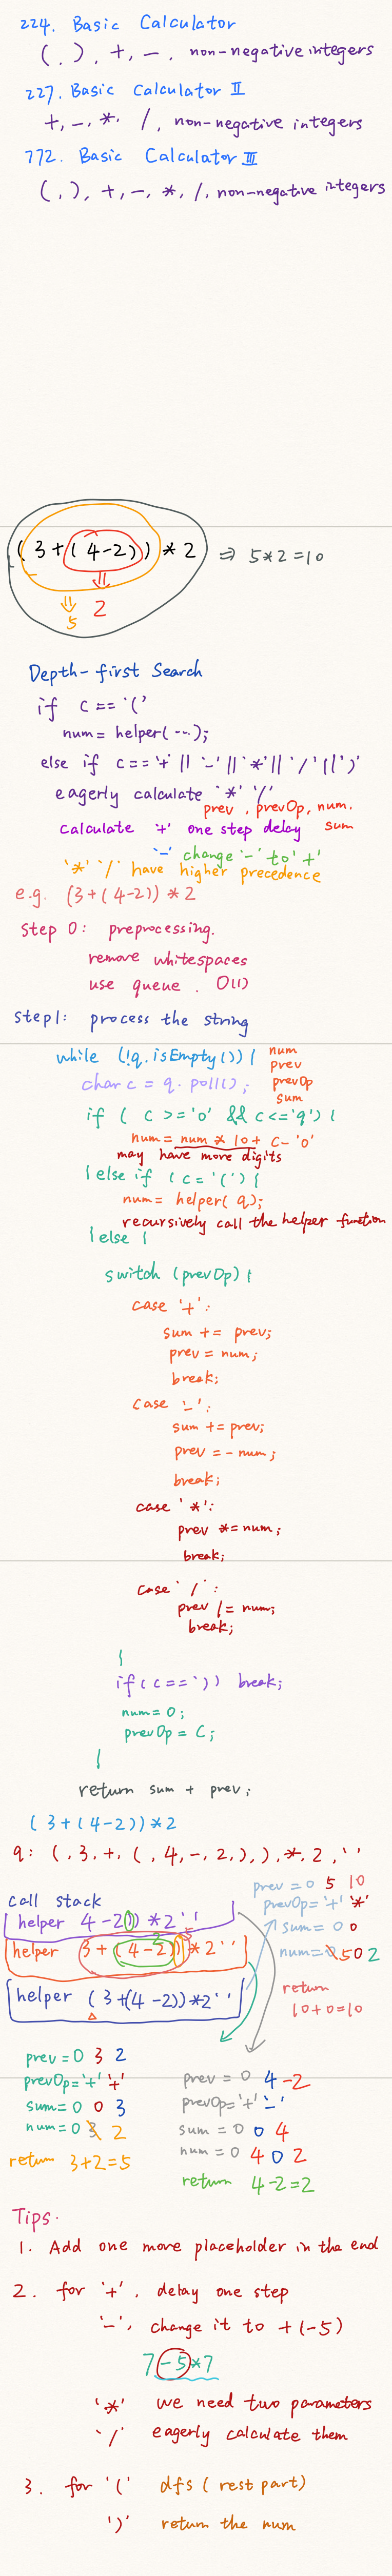 224. Basic Calculator
( , ) , + , - , non-negative integers
227. Basic Calculator II
+, -, *, /, non-negative integers
772. Basic Calculator III
( , ) , +, -, *, /, non-negative integers
( 3 + ( 4-2 ) ) * 2 ⇒ 5*2=10
⇓ 2
⇓ 5
Depth-first Search
if c == '('
num = helper(...);
else if c == '+' || '-' || '*' || '/' || ')'
eagerly calculate '*' '/'
prev, prevOp, num,
calculate '+' one step delay sum
'-' change '-' to '+'
'*' '/' have higher precedence
e.g. (3+(4-2))*2
Step 0: preprocessing.
remove whitespaces
use queue. O(1)
Step1: process the string
while (!q.isEmpty()) { num
prev
char c = q.poll(); prevOp
sum
if ( c >= '0' && c <= '9') {
num = num * 10 + c - '0'
may have more digits
} else if (c = '(') {
num = helper(q);
recursively call the helper function
} else {
switch (prevOp) {
case '+':
sum += prev;
prev = num;
break;
case '-':
sum += prev;
prev = - num;
break;
case '*':
prev *= num;
break;
case '/':
prev /= num;
break;
}
if (c == ')') break;
num = 0;
prevOp = c;
}
return sum + prev;
(3+(4-2))*2
q: (, 3, +, (, 4, -, 2, ), ), *, 2, ' '
prev = 0 5 10
call stack
prevOp = '+' '*'
helper 4-2))*2' '
sum = 0 0
helper 3+(4-2))*2' '
2
5
num = 0 5 0 2
helper (3+(4-2))*2' '
return
10+0=10
prev = 0 3 2
prevOp = '+' '+'
sum = 0 0 3
num = 0 3 2
return 3+2=5
prev = 0 4 -2
prevOp = '+' '-'
sum = 0 0 4
num = 0 4 0 2
return 4-2=2
Tips.
1. Add one more placeholder in the end
2. for '+', delay one step
'-', change it to +(-5)
7-5*7
'*' we need two parameters
'/' eagerly calculate them
3. for '(' dfs (rest part)
')' return the num